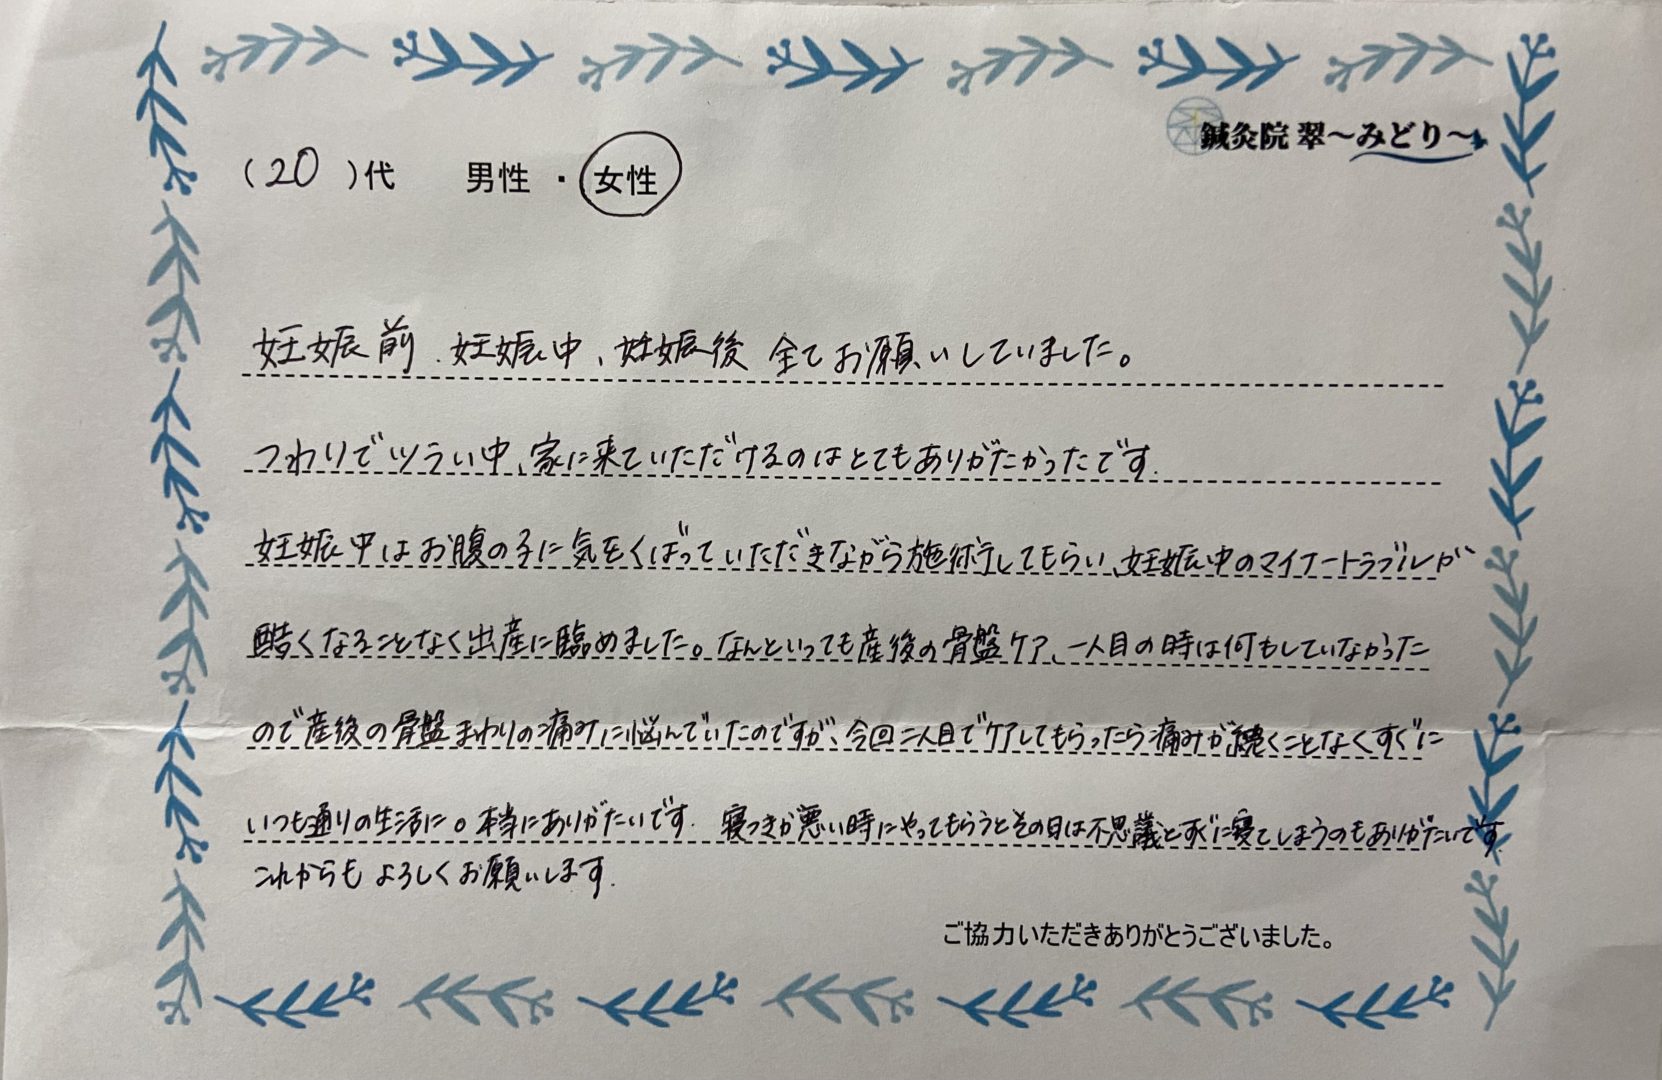 鍼灸院 翠～みどり～
（20）代　男性・女性
妊娠前、妊娠中、妊娠後 全てお願いしていました。
つわりでツラい中、家に来ていただけるのはとてもありがたかったです.
妊娠中はお腹の子に気をくばっていただきながら施術してもらい、妊娠中のマイナートラブルが
酷くなることなく出産に臨めました。なんといっても産後の骨盤ケア、一人目の時は何もしていなかった
ので産後の骨盤まわりの痛みに悩んでいたのですが、今回二人目でケアしてもらったら痛みが続くことなくすぐに
いつも通りの生活に。本当にありがたいです. 寝つきが悪い時にやってもらうとその日は不思議とすぐに寝てしまうのもありがたいです.
これからも よろしくお願いします.
ご協力いただきありがとうございました。